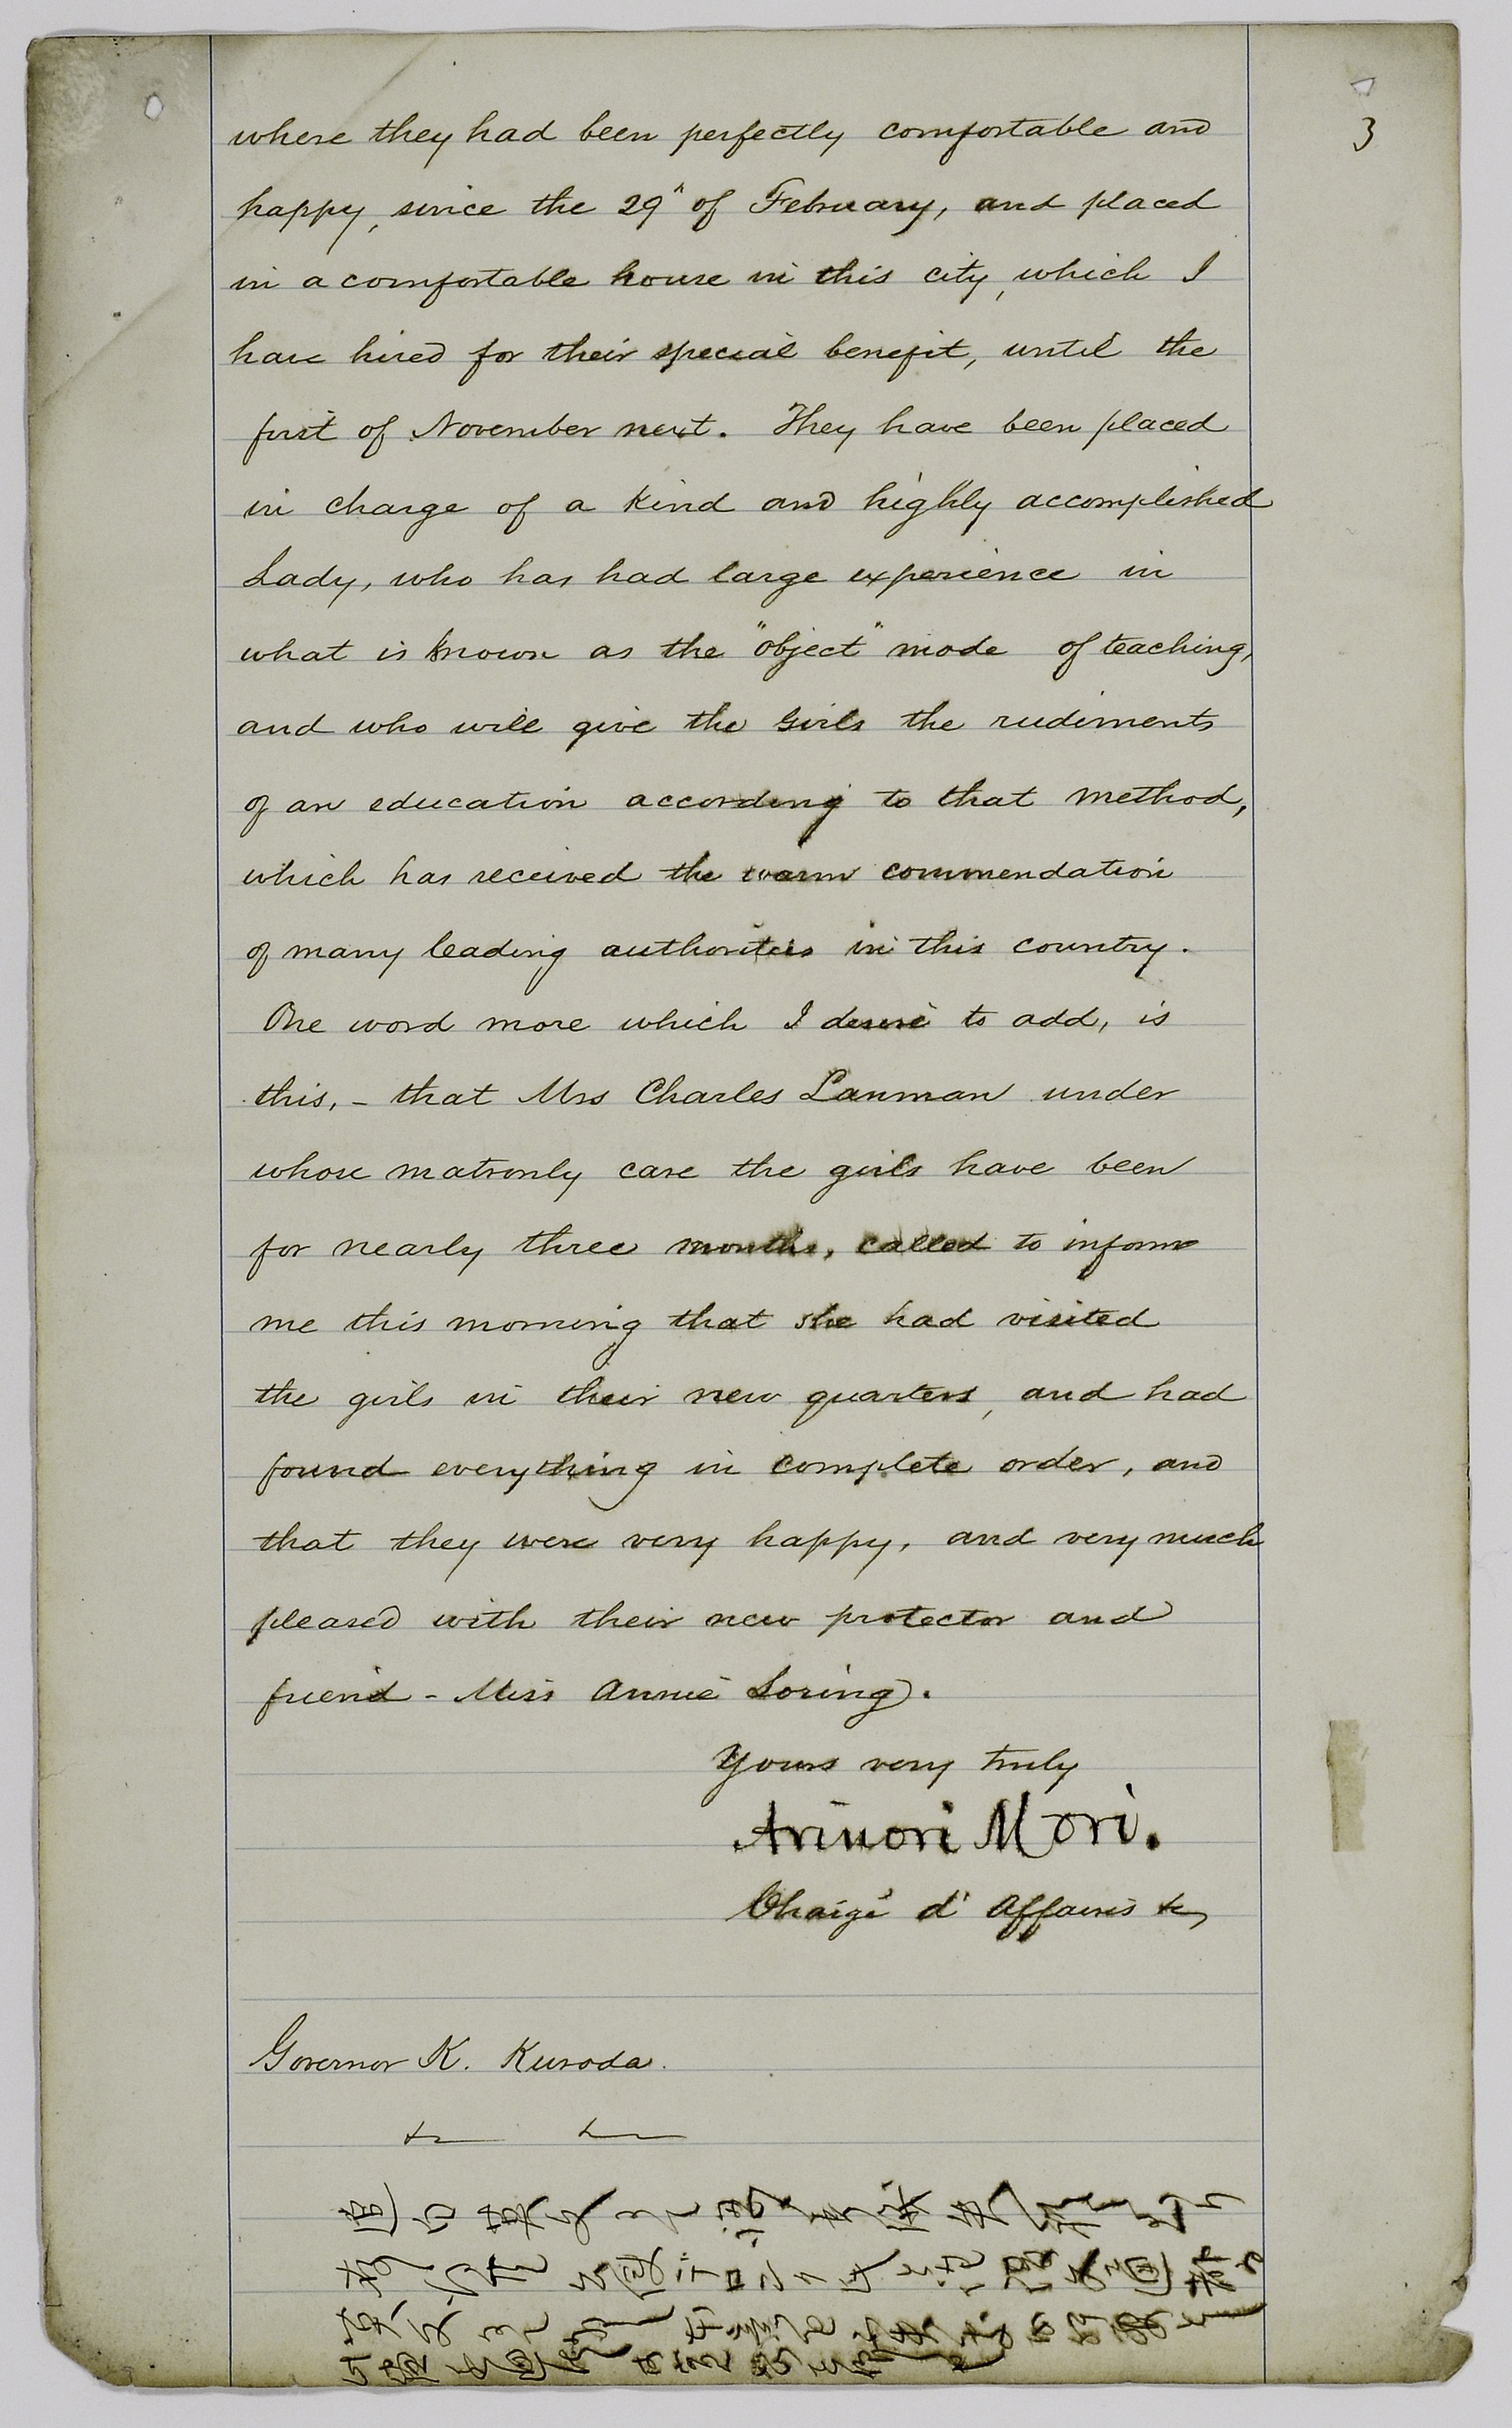 3
where they had been perfectly comfortable and
happy, since the 29" of February, and placed
in a comfortable house in this city, which I
have hired for their special benefit, until the
first of November next. They have been placed
in charge of a kind and highly accomplished
Lady, who has had large experience in
what is known as the "object" mode of teaching,
and who will give the Girls the rudiments
of an education according to that method,
which has received the warm commendation
of many leading authorities in this country.
One word more which I desire to add, is
this, - that Mrs Charles Lanman under
whose matronly care the girls have been
for nearly three months, called to inform
me this morning that she had visited
the girls in their new quarters, and had
found everything in complete order, and
that they were very happy, and very much
pleased with their new protector and
friend - Miss Annie Loring).
Yours very truly
Arinori Mori.
Chargé d' Affaires &c
Governor K. Kuroda.
&c &c